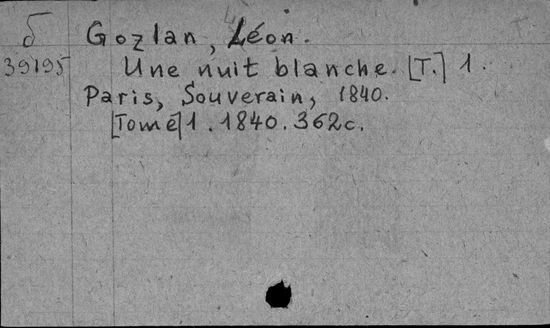 б
39195
Gozlan, Léon.
Une nuit blanche. [T.] 1.
Paris, Souverain, 1840.
[Tome] 1. 1840. 362 с.